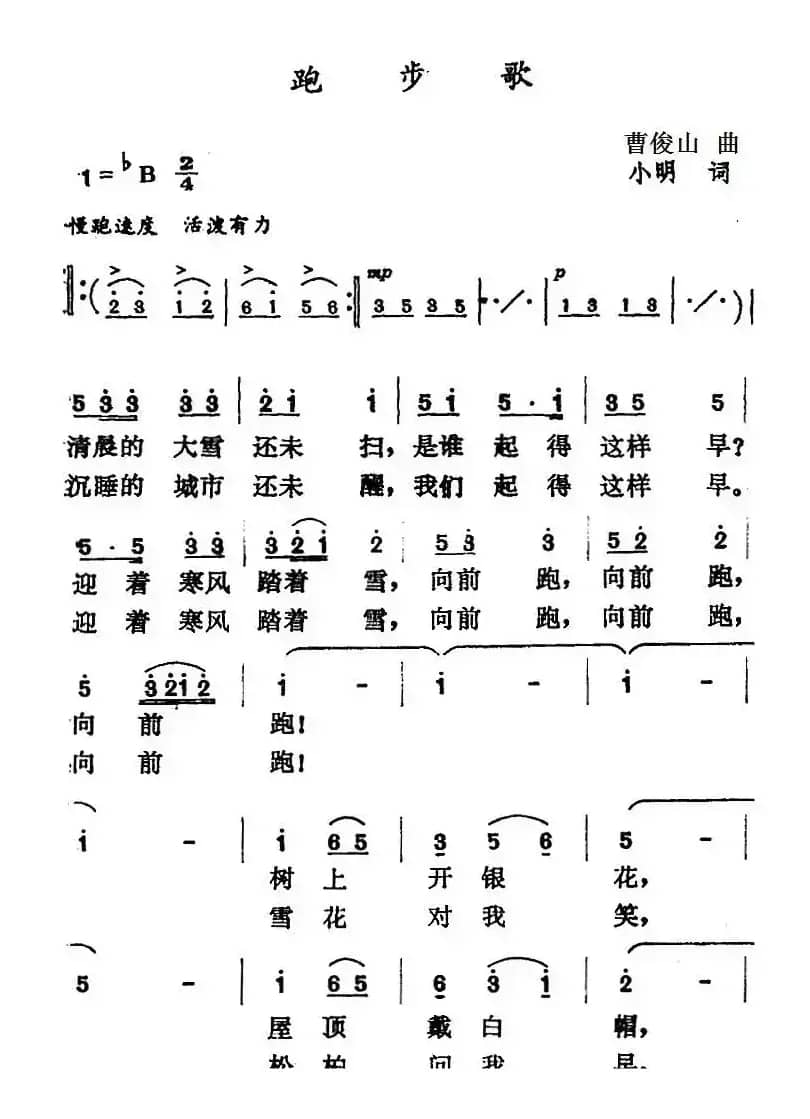 跑 步 歌
曹俊山 曲
1=♭B 2/4
小明 词
慢跑速度 活泼有力
mp p
2 3 1 2 | 6 1 5 6 :‖ 3 5 3 5 | ·/· | 1 3 1 3 | ·/· ) |
5 3 3 3 3 | 2 1 1 | 5 1 5 · 1 | 3 5 5 |
清晨的 大雪 还未 扫, 是谁 起 得 这样 早?
沉睡的 城市 还未 醒, 我们 起 得 这样 早。
5 · 5 3 3 | 3 2 1 2 | 5 3 3 | 5 2 2 |
迎 着 寒风 踏着 雪, 向前 跑, 向前 跑,
迎 着 寒风 踏着 雪, 向前 跑, 向前 跑,
5 3 2 1 2 | 1 - | 1 - | 1 - |
向 前 跑!
向 前 跑!
1 - | 1 6 5 | 3 5 6 | 5 - |
树 上 开 银 花,
雪 花 对 我 笑,
5 - | 1 6 5 | 6 3 1 | 2 - |
屋 顶 戴 白 帽,
松 柏 问 我 早,